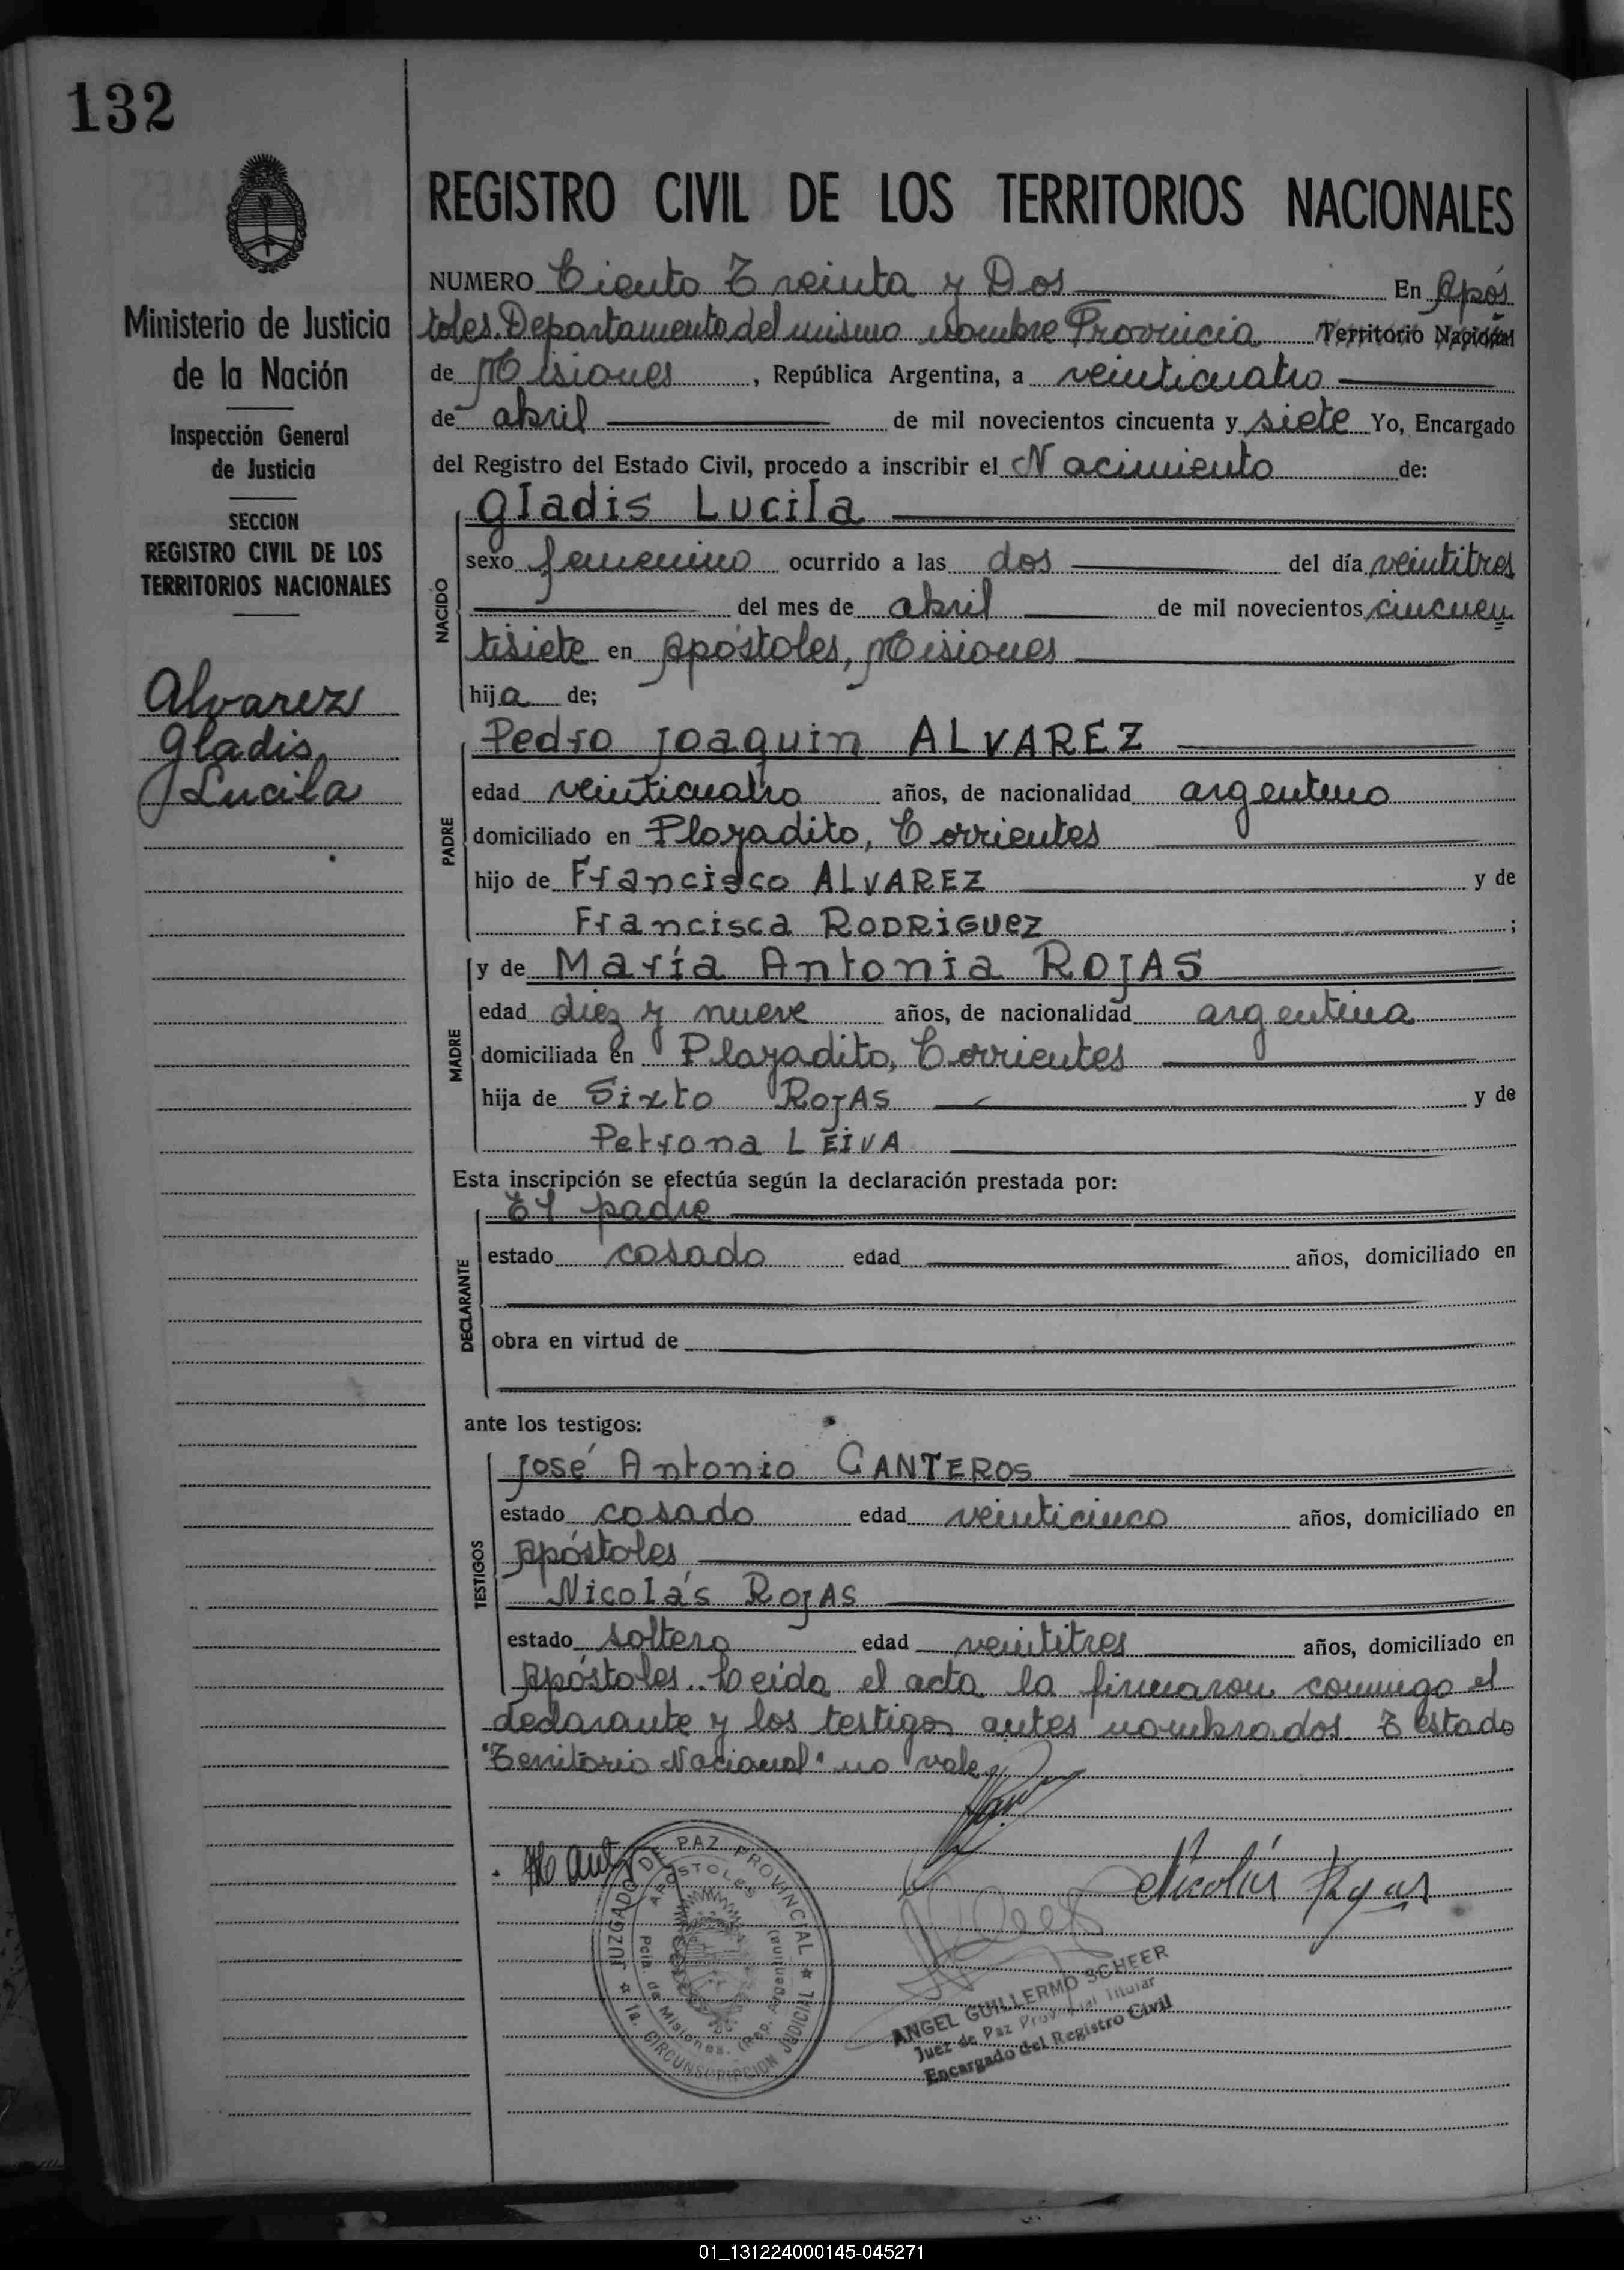 132
Ministerio de Justicia
de la Nación
Inspección General
de Justicia
SECCION
REGISTRO CIVIL DE LOS
TERRITORIOS NACIONALES
Alvarez
Gladis
Lucila
REGISTRO CIVIL DE LOS TERRITORIOS NACIONALES
NUMERO Ciento Treinta y Dos En Após
toles. Departamento del mismo nombre Provincia Territorio Nacional
de Misiones, República Argentina, a veinticuatro
de abril de mil novecientos cincuenta y siete Yo, Encargado
del Registro del Estado Civil, procedo a inscribir el Nacimiento de:
NACIDO
Gladis Lucila
sexo femenino ocurrido a las dos del día veintitres
del mes de abril de mil novecientos cincuen
tisiete en Apóstoles, Misiones
hija de;
PADRE
Pedro Joaquin ALVAREZ
edad veinticuatro años, de nacionalidad argentino
domiciliado en Playadito, Corrientes
hijo de Francisco ALVAREZ y de
Francisca RODRiGUeZ ;
MADRE
y de María Antonia ROJAS
edad diez y nueve años, de nacionalidad argentina
domiciliada en Playadito, Corrientes
hija de Sixto ROJAS y de
Petrona LEiVA
Esta inscripción se efectúa según la declaración prestada por:
DECLARANTE
El padre
estado casado edad años, domiciliado en
obra en virtud de
ante los testigos:
TESTIGOS
José Antonio CANTEROS
estado casado edad veinticinco años, domiciliado en
Apóstoles
Nicolás ROJAS
estado soltero edad veintitres años, domiciliado en
Apóstoles.. Leida el acta la firmaron conmigo el
declarante y los testigos antes nombrados. Testado
"Territorio Nacional" no vale
Nicolás Rojas
JUZGADO DE PAZ PROVINCIAL
APOSTOLES
Pcia. de Misiones. (Rep. Argentina)
1a. CIRCUNSCRIPCION JUDICIAL
ANGEL GUILLERMO SCHEER
Juez de Paz Provincial Titular
Encargado del Registro Civil
01_131224000145-045271